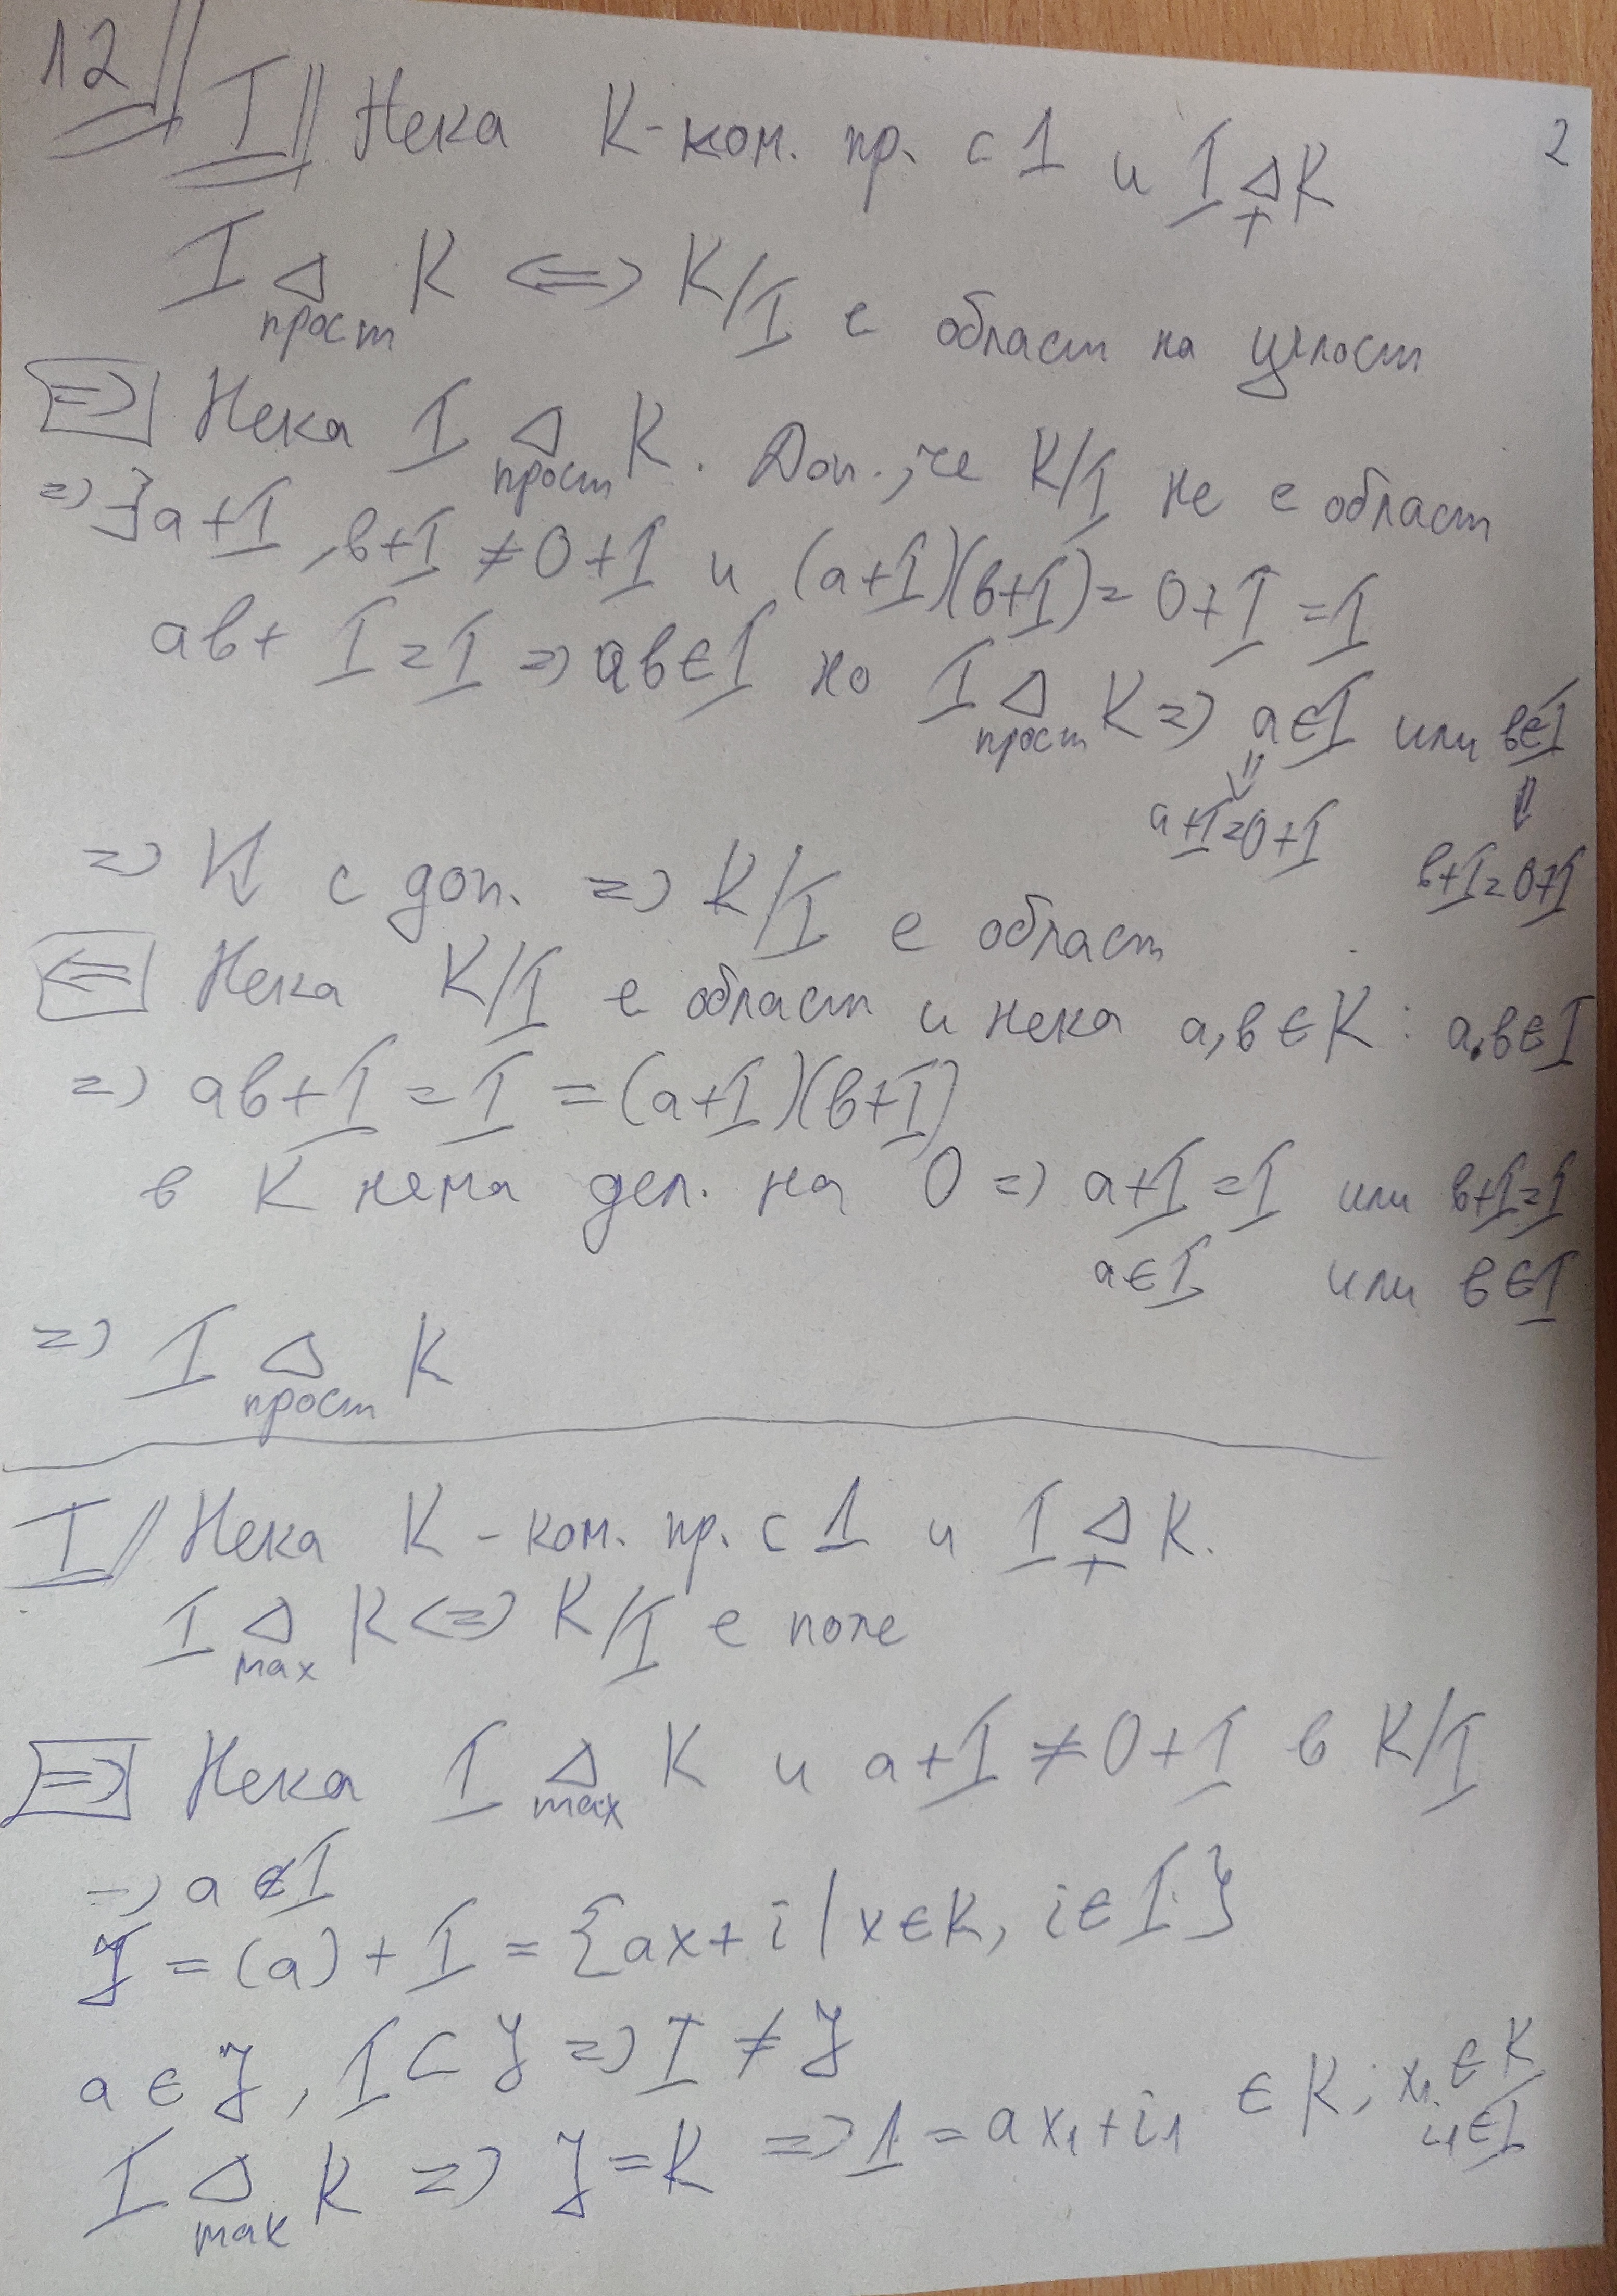 12
2
I Нека К-ком. пр. с 1 и I ⊴≠ K
I Δ прост K <=> K/I е област на цялост
=> Нека I Δ прост K. Доп., че K/I не е област
=> ∃ a+I, b+I ≠ 0+I и (a+I)(b+I) = 0+I = I
ab + I = I => ab ∈ I но I Δ прост K => a ∈ I или b ∈ I
a+I=0+I b+I=0+I
=> с доп. => K/I е област
<= Нека K/I е област и нека a, b ∈ K : a.b ∈ I
=> ab+I = I = (a+I)(b+I)
в K нема дел. на 0 => a+I = I или b+I=I
a ∈ I или b ∈ I
=> I Δ прост K
I Нека K - ком. пр. с 1 и I Δ≠ K.
I Δ max K <=> K/I е поле
=> Нека I Δ max K и a+I ≠ 0+I в K/I
=> a ∉ I
J = (a) + I = {ax + i | x ∈ K, i ∈ I}
a ∈ J, I ⊂ J => I ≠ J
I Δ max K => J = K => 1 = ax₁ + i₁ ∈ K; x₁ ∈ K
i₁ ∈ I